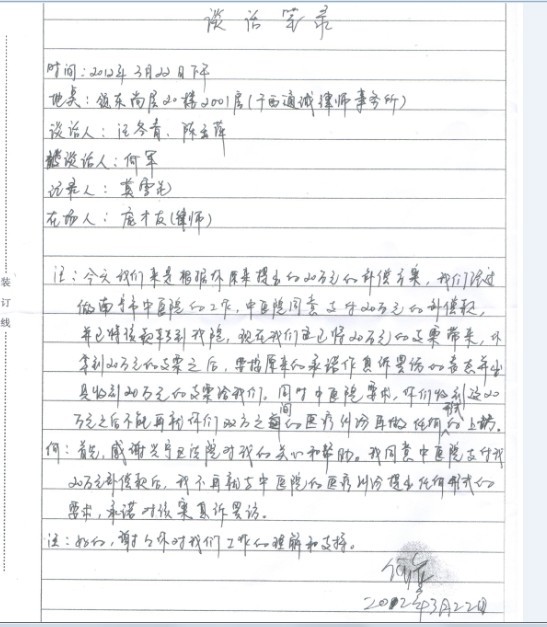 谈话笔录
时间：2012年3月22日下午
地点：领东尚层20楼2001房(广西通诚律师事务所)
谈话人：汪冬青、陈玉萍
被谈话人：何军
记录人：莫雪花
在场人：庞才友(律师)
汪：今天我们来是根据你原来提出的20万元的补偿方案，我们经过
做南宁市中医院的工作，中医院同意支付20万元的补偿款，
并已将该款转到我院，现在我们也已将20万元的支票带来，你
拿到20万元的支票之后，要按原来的承诺作息诉罢访的表态并出
具收到20万元的支票给我们。同时中医院要求，你们收到这20
万元之后不能再就你们双方之间的医疗纠纷再做任何形式的上访。
何：首先，感谢兴宁区法院对我的关心和帮助。我同意中医院支付我
20万元补偿款后，我不再就与中医院的医疗纠纷提出任何形式的
要求，承诺对该案息诉罢访。
汪：好的，谢谢你对我们工作的理解和支持。
何军
2012年3月22日
装
订
线